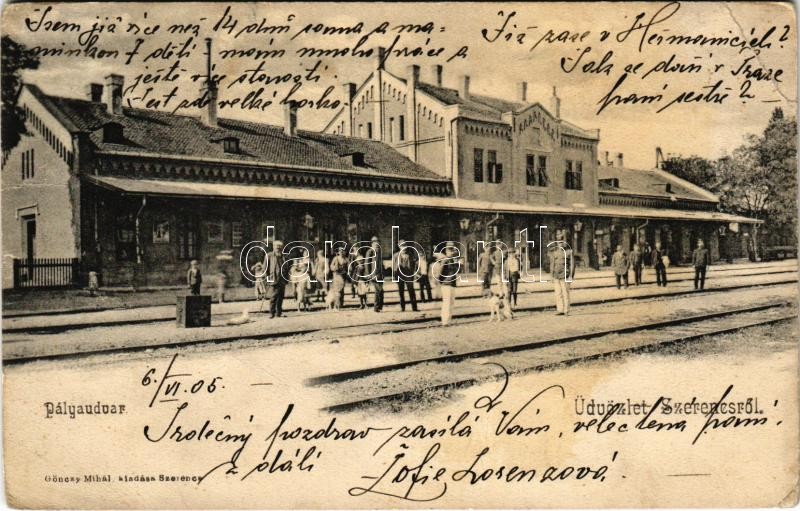 Jsem již více než 14 dnů sama a ma-
minkou 7 dětí mám mnoho práce a
ještě více starostí.
Čest zde velké horko.
Již zase v Heřmanicích?
Jak se daří v Praze
paní sestře?
darabanth
6/VI. 05.
Pályaudvar.
Üdvözlet Szerencsről.
Srdečný pozdrav zasílá Vám, velectěná paní
z dáli Žofie Lorenzová
Gönczy Mihál, kiadása Szerencs